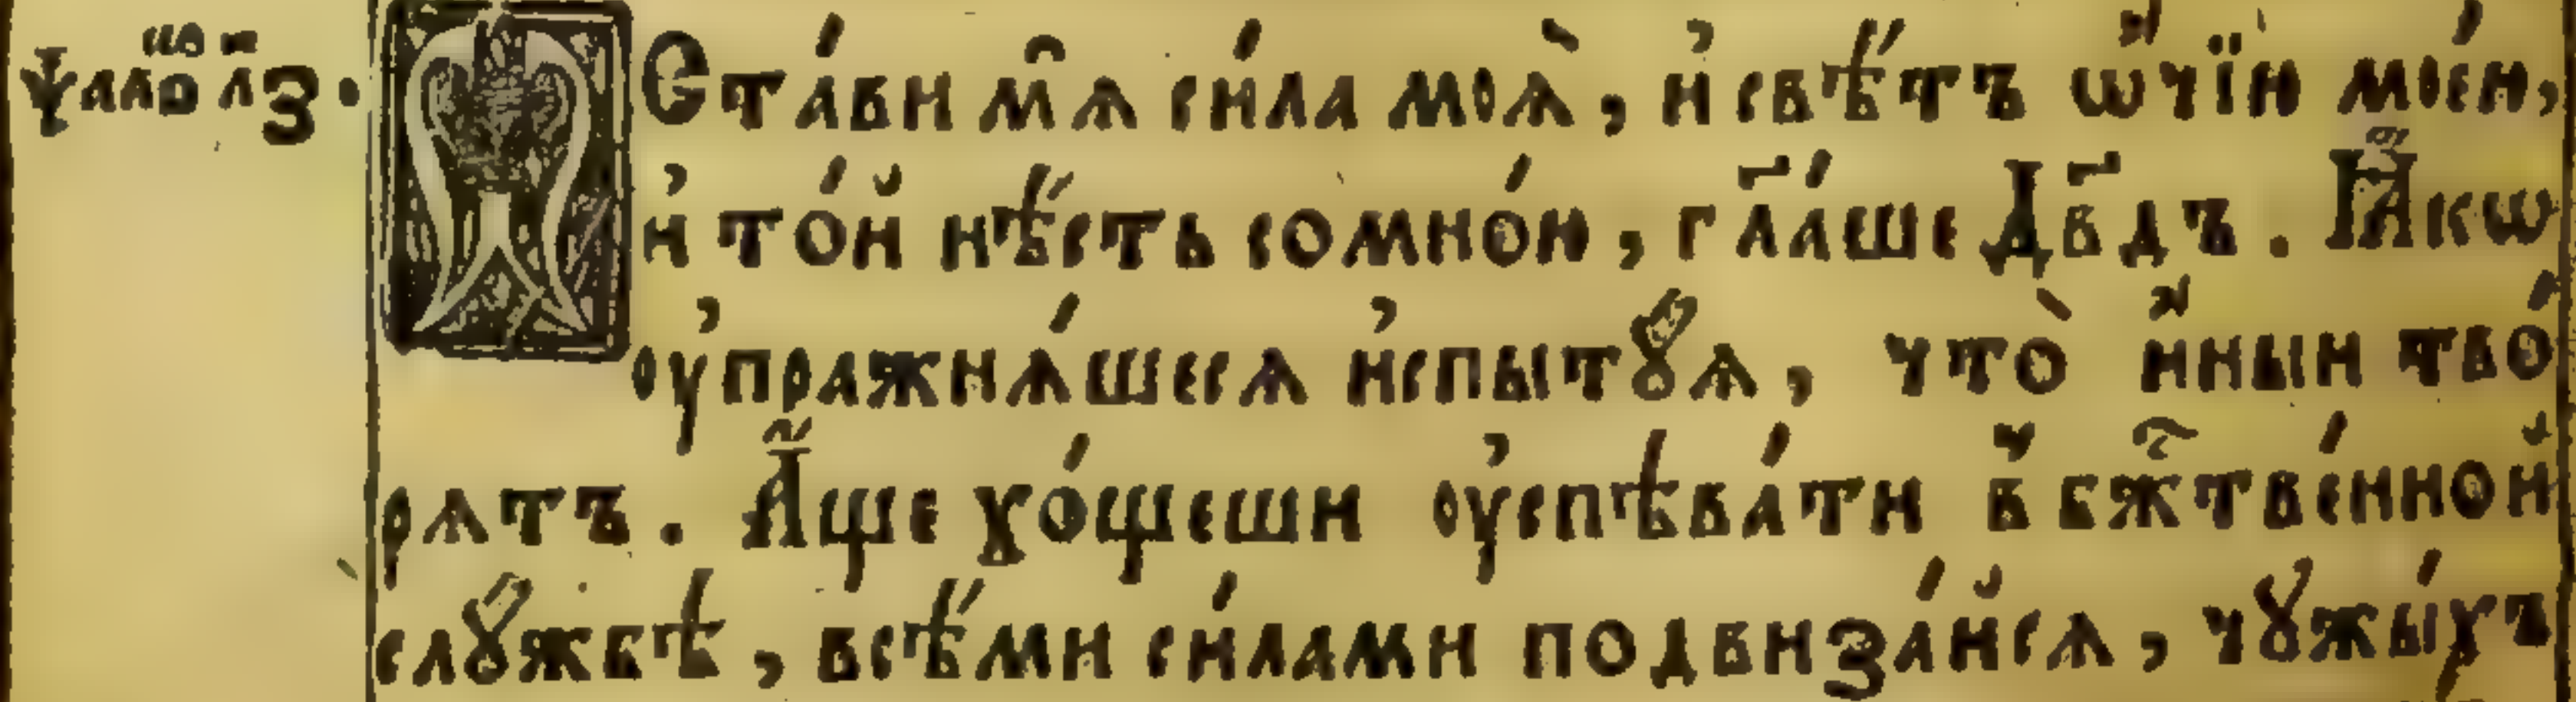 ѱало́ м л҃з.
Ѡ Ста́ви мѧ̑ си́ла моѧ̀, и҆ свѣ́тъ ѡ҆́чїю мое́ю,
и҆ то́й нѣ́сть сомно́ю, гл҃аше Дв҃дъ. Ꙗ҆́кѡ
ѹ҆пражнѧ́шесѧ и҆спытꙋ́ѧ, что̀ и҆ны́и тво́
рѧтъ. А҆́ще хо́щеши ѹ҆спѣва́ти в̾ бж҃тве́нной
слꙋ́жбѣ, всѣ́ми си́лами подвиза́йсѧ, чꙋжы́хъ